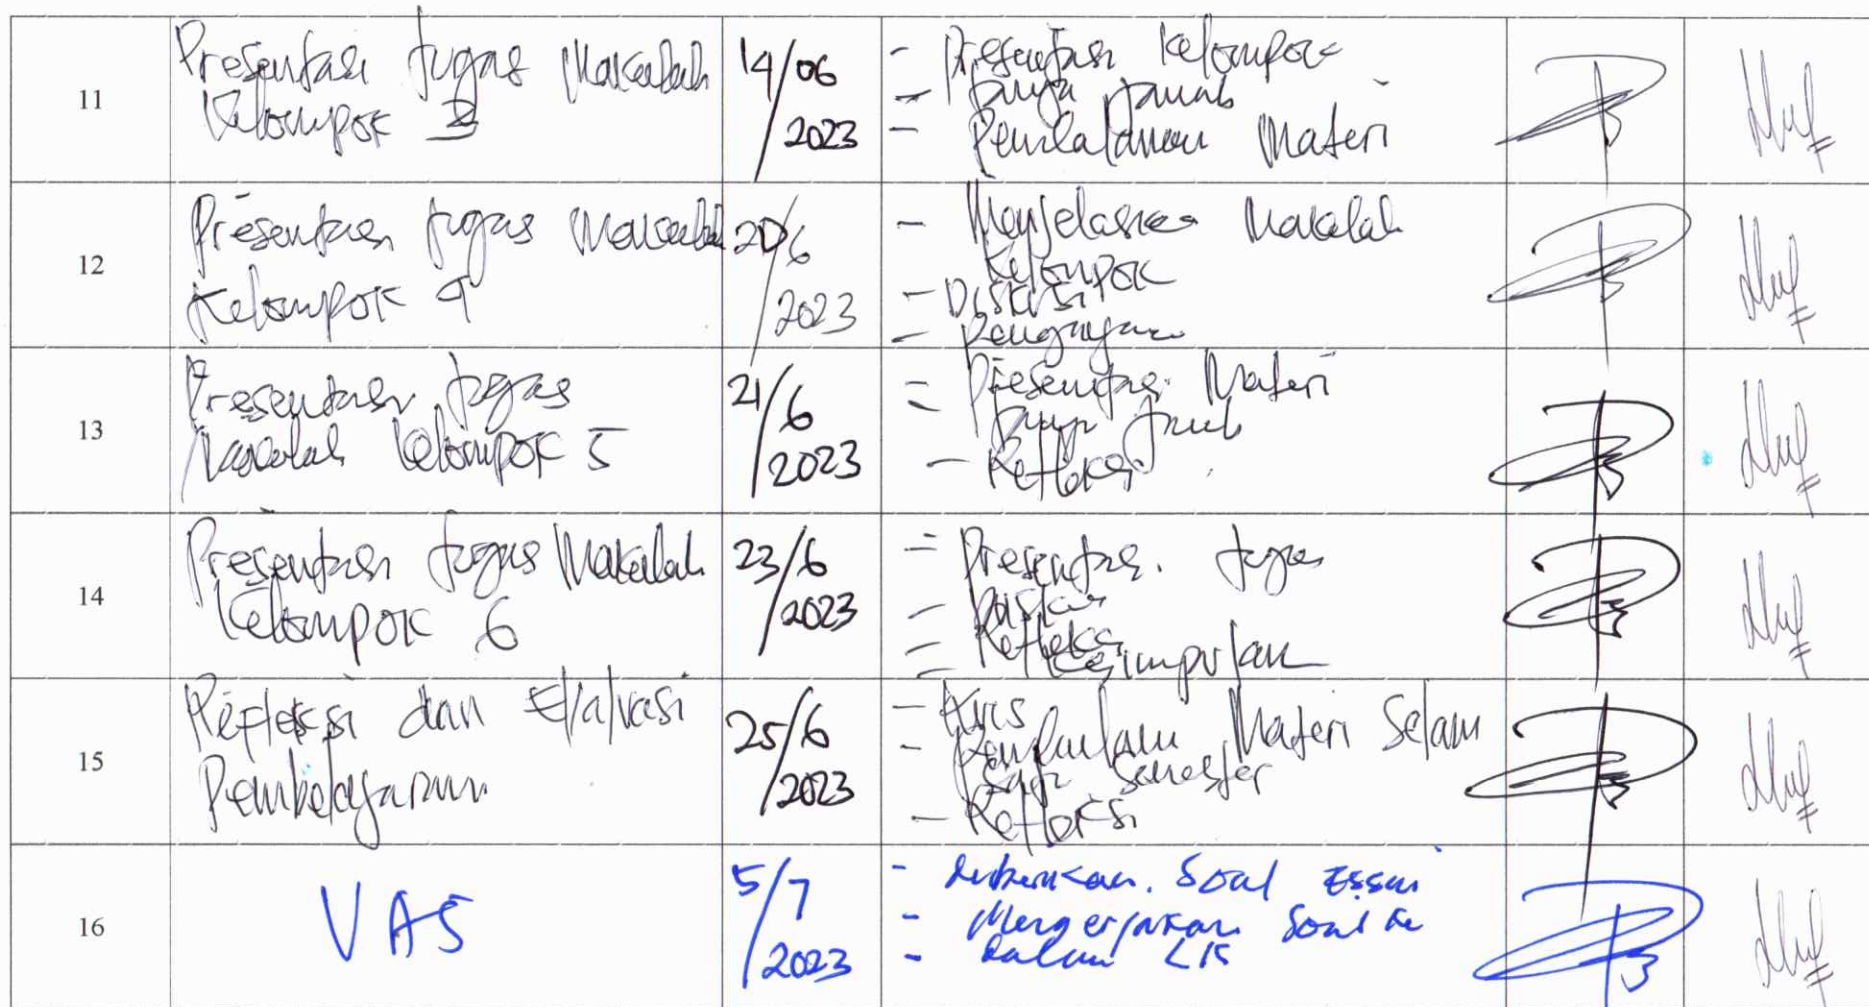 11
Presentasi tugas Makalah
Kelompok 3
14/06
2023
- Presentasi Kelompok
- Tanya Jawab
- Pendalaman Materi
12
Presentasi tugas Makalah
Kelompok 4
20/6
2023
- Menjelaskan Makalah
Kelompok
- Diskusi
-
13
Presentasi tugas
Makalah Kelompok 5
21/6
2023
- Presentasi Materi
- Tanya Jawab
- Refleksi
14
Presentasi tugas Makalah
Kelompok 6
23/6
2023
- Presentasi tugas
- Diskusi
- Refleksi
- Kesimpulan
15
Refleksi dan Evalvasi
Pembelajaran
25/6
2023
- Kuis
- Materi Selam
Semester
- Refleksi
16
UAS
5/7
2023
- Diberikan Soal Essai
- Mengerjakan Soal ke
- dalam LK